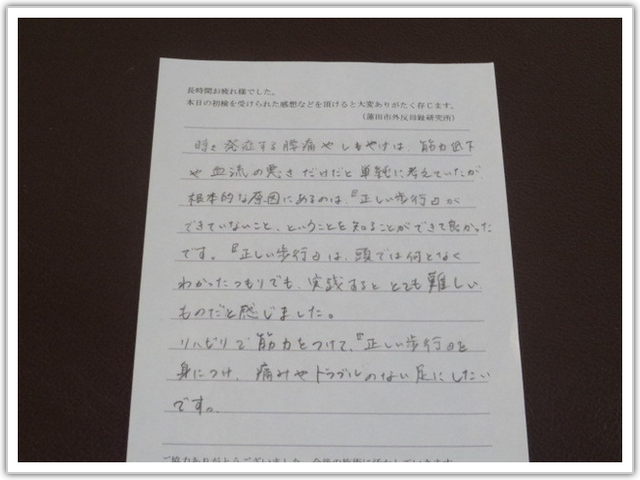 長時間お疲れ様でした。
本日の初検を受けられた感想などを頂けると大変ありがたく存じます。
(蓮田市外反母趾研究所)
時々発症する腰痛やしもやけは、筋力低下
や血流の悪さだけだと単純に考えていたが
根本的な原因にあるのは、『正しい歩行』が
できていないこと、ということを知ることができて良かった
です。『正しい歩行』は、頭では何となく
わかったつもりでも、実践すると とても難しい
ものだと感じました。
リハビリで筋力をつけて、『正しい歩行』を
身につけ、痛みやトラブルのない足にしたい
です。
ご協力ありがとうございました。今後の施術に活かしていきます。